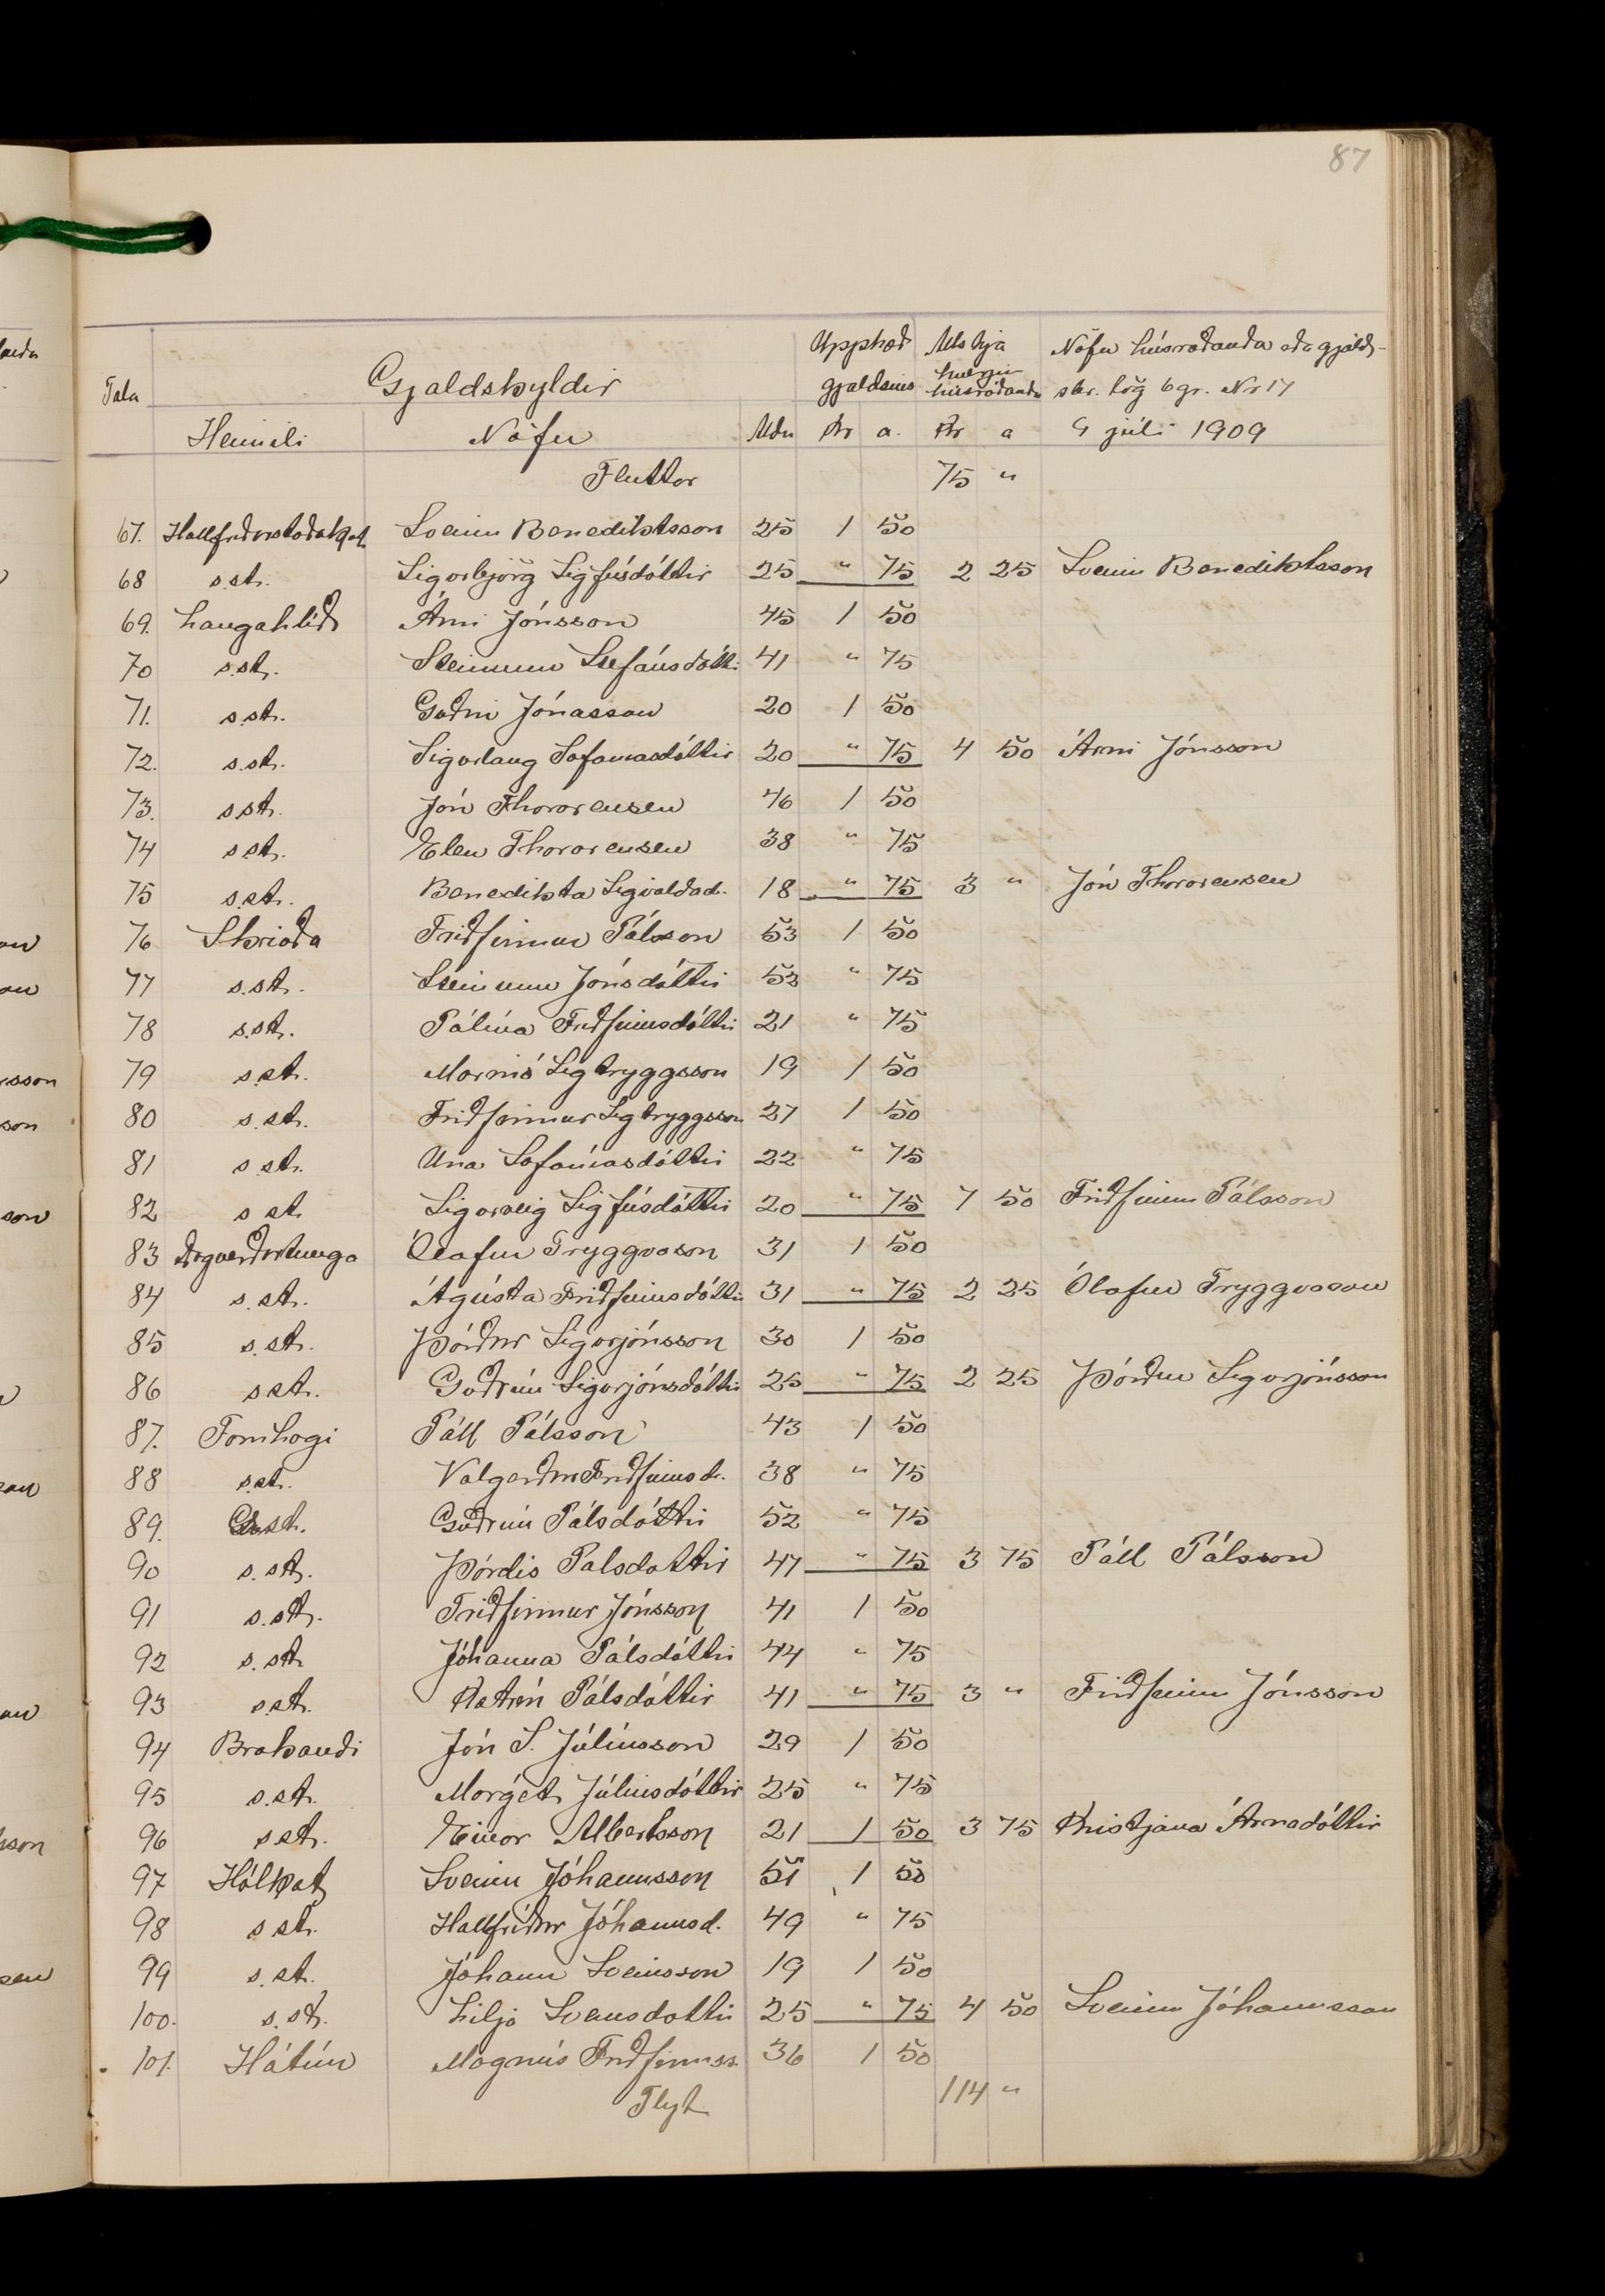 87
Upphæð Alls hjá Nöfn húsráðanda eða gjald-
Tala Gjaldskyldir gjaldsins hverjum húsráðanda sbr. lög 6 gr. Nr 17
Heimili Nöfn Aldur Kr a. Kr a 9 júlí 1909
Fluttar 75 "
67. Sveinn Benediktsson 25 1 50
68 s.st. Sigurbjörg Sigfúsdóttir 25 " 75 2 25 Sveinn Benediktsson
69. Langahlíð Árni Jónsson 45 1 50
70 s.st. Steinunn Stefánsdótti 41 " 75
71. s.st. Guðni Jónasson 20 1 50
72. s.st. Sigurlaug Sofaníasdóttir 20 " 75 4 50 Árni Jónsson
73. s.st. Jón Thorarensen 46 1 50
74 s.st. Elen Thorarensen 38 " 75
75 s.st. Benedikta Sigvaldad. 18 " 75 3 " Jón Thorarensen
76 Skriða Friðfinnur Pálsson 53 1 50
77 s.st. Steinunn Jónsdóttir 53 " 75
78 s.st. Pálína Friðfinnsdóttir 21 " 75
79 s.st. Marinó Sigtryggsson 19 1 50
80 s.st. Friðfinnur Sigtryggsson 27 1 50
81 s.st. Una Sofaníasdóttir 22 " 75
82 s st Sigurveig Sigfúsdóttir 20 " 75 7 50 Friðfinnur Pálsson
83 Dagverðartunga Ólafur Tryggvason 31 1 50
84 s.st. Ágústa Friðfinnsdóttir 31 " 75 2 25 Ólafur Tryggvason
85 s.st. Þórður Sigurjónsson 30 1 50
86 s.st. Guðrún Sigurjónsdóttir 25 " 75 2 25 Þórður Sigurjónsson
87. Fornhagi Páll Pálsson 43 1 50
88 s.st. Valgerður Friðfinnsd. 38 " 75
89. s.st. Guðrún Pálsdóttir 52 " 75
90 s.st. Þórdís Palsdottir 47 " 75 3 75 Páll Pálsson
91 s.st. Friðfinnur Jónsson 41 1 50
92 s.st. Jóhanna Pálsdóttir 44 " 75
93 s.st. Katrín Pálsdóttir 41 " 75 3 " Friðfinnur Jónsson
94 Brakandi Jón S. Júlíusson 29 1 50
95 s.st. Margét Júlíusdóttir 25 " 75
96 s.st. Einar Albertsson 21 1 50 3 75 Kristjana Árnadóttir
97 Hólkot Sveinn Jóhannsson 51 1 50
98 s st. Hallfríður Jóhannsd. 49 " 75
99 s.st. Jóhann Sveinsson 19 1 50
100. s.st. Lilja Sveinsdottir 25 " 75 4 50 Sveinn Jóhannsson
101. Hátún Magnús Friðfinnss. 36 1 50
Flyt 114 "